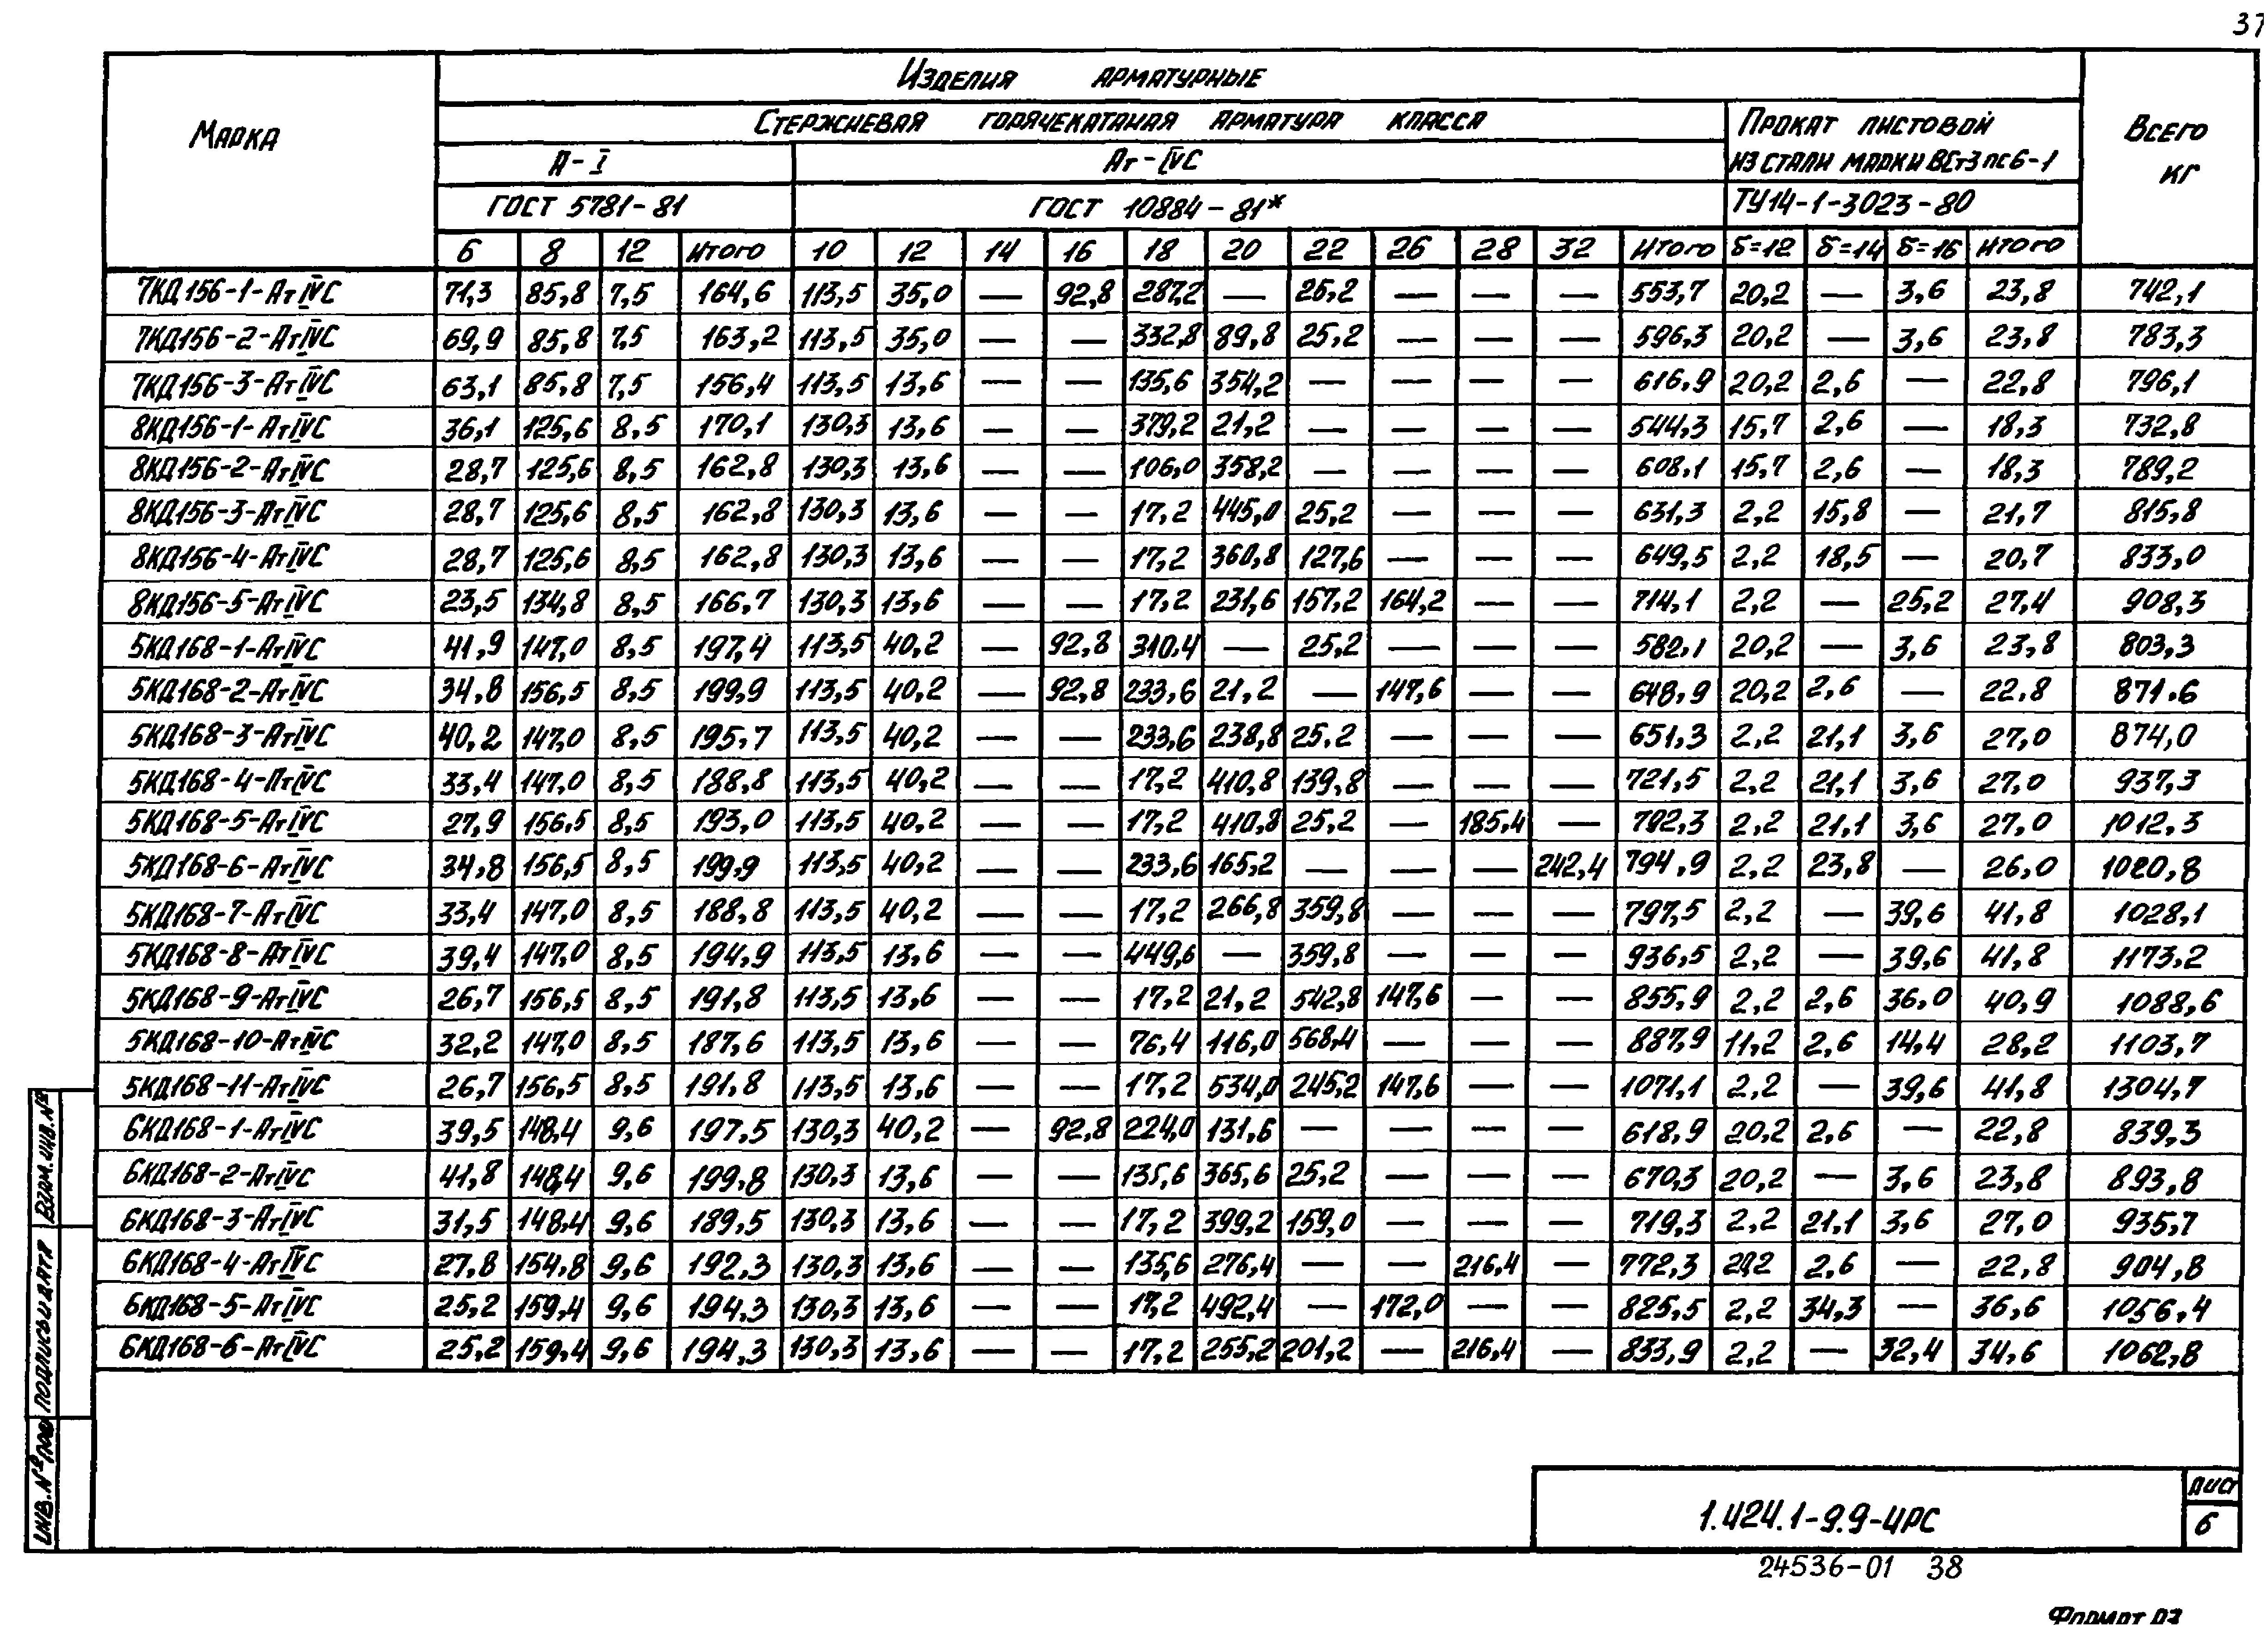 37
Изделия арматурные
Марка
Стержневая горячекатаная арматура класса
Прокат листовой из стали марки ВСт3пс6-1
Всего кг
А-I
Ат-IVС
ГОСТ 5781-81
ГОСТ 10884-81*
ТУ14-1-3023-80
6 8 12 Итого 10 12 14 16 18 20 22 26 28 32 Итого δ=12 δ=14 δ=16 Итого
7КД156-1-АтIVС 71,3 85,8 7,5 164,6 113,5 35,0 — 92,8 287,2 — 25,2 — — — 553,7 20,2 — 3,6 23,8 742,1
7КД156-2-АтIVС 69,9 85,8 7,5 163,2 113,5 35,0 — — 332,8 89,8 25,2 — — — 596,3 20,2 — 3,6 23,8 783,3
7КД156-3-АтIVС 63,1 85,8 7,5 156,4 113,5 13,6 — — 135,6 354,2 — — — — 616,9 20,2 2,6 — 22,8 796,1
8КД156-1-АтIVС 36,1 125,6 8,5 170,1 130,3 13,6 — — 379,2 21,2 — — — — 544,3 15,7 2,6 — 18,3 732,8
8КД156-2-АтIVС 28,7 125,6 8,5 162,8 130,3 13,6 — — 106,0 358,2 — — — — 608,1 15,7 2,6 — 18,3 789,2
8КД156-3-АтIVС 28,7 125,6 8,5 162,8 130,3 13,6 — — 17,2 445,0 25,2 — — — 631,3 2,2 15,8 — 21,7 815,8
8КД156-4-АтIVС 28,7 125,6 8,5 162,8 130,3 13,6 — — 17,2 360,8 127,6 — — — 649,5 2,2 18,5 — 20,7 833,0
8КД156-5-АтIVС 23,5 134,8 8,5 166,7 130,3 13,6 — — 17,2 231,6 157,2 164,2 — — 714,1 2,2 — 25,2 27,4 908,3
5КД168-1-АтIVС 41,9 147,0 8,5 197,4 113,5 40,2 — 92,8 310.4 — 25,2 — — — 582,1 20,2 — 3,6 23,8 803,3
5КД168-2-АтIVС 34,8 156,5 8,5 199,9 113,5 40,2 — 92,8 233,6 21,2 — 147,6 — — 648,9 20,2 2,6 — 22.8 871.6
5КД168-3-АтIVС 40,2 147,0 8,5 195,7 113,5 40,2 — — 233,6 238,8 25.2 — — — 651,3 2,2 21,1 3,6 27,0 874,0
5КД168-4-АтIVС 33,4 147,0 8,5 188,8 113,5 40,2 — — 17,2 410,8 139,8 — — — 721,5 2,2 21,1 3,6 27,0 937,3
5КД168-5-АтIVС 27,9 156,5 8,5 193,0 113,5 40,2 — — 17,2 410,8 25,2 — 185,4 — 792,3 2,2 21,1 3,6 27,0 1012,3
5КД168-6-АтIVС 34,8 156,5 8,5 199,9 113,5 40,2 — — 233,6 165,2 — — — 242,4 794,9 2,2 23,8 — 26,0 1020,8
5КД168-7-АтIVС 33,4 147,0 8,5 188,8 113,5 40,2 — — 17,2 266,8 359,8 — — — 797,5 2,2 — 39,6 41,8 1028,1
5КД168-8-АтIVС 39,4 147,0 8,5 194,9 113,5 13,6 — — 449,6 — 359,8 — — — 936,5 2,2 — 39,6 41,8 1173,2
5КД168-9-АтIVС 26,7 156,5 8,5 191,8 113,5 13,6 — — 17,2 21,2 542,8 147,6 — — 855,9 2,2 2,6 36,0 40,9 1088,6
5КД168-10-АтIVС 32,2 147,0 8,5 187,6 113,5 13,6 — — 76,4 116,0 568,4 — — — 887,9 11,2 2,6 14,4 28,2 1103,7
5КД168-11-АтIVС 26,7 156,5 8,5 191,8 113,5 13,6 — — 17,2 534,0 245,2 147,6 — — 1071,1 2,2 — 39,6 41,8 1304,7
6КД168-1-АтIVС 39,5 148,4 9,6 197,5 130,3 40,2 — 92,8 224,0 131,6 — — — — 618,9 20,2 2,6 — 22,8 839,3
6КД168-2-АтIVС 41,8 148,4 9,6 199,8 130,3 13,6 — — 135,6 365,6 25,2 — — — 670,3 20,2 — 3,6 23,8 893,8
6КД168-3-АтIVС 31,5 148,4 9,6 189,5 130,3 13,6 — — 17,2 399,2 159,0 — — — 719,3 2,2 21,1 3,6 27,0 935,7
6КД168-4-АтIVС 27,8 154,8 9,6 192,3 130,3 13,6 — — 135,6 276,4 — — 216,4 — 772,3 20,2 2,6 — 22,8 904,8
6КД168-5-АтIVС 25,2 159,4 9,6 194,3 130,3 13,6 — — 17,2 492,4 — 172,0 — — 825,5 2,2 34,3 — 36,6 1056,4
6КД168-6-АтIVС 25,2 159,4 9,6 194,3 130,3 13,6 — — 17,2 255,2 201,2 — 216,4 — 833,9 2,2 — 32,4 34,6 1062,8
Взам. инв. №
Подпись и дата
Инв. № подл
1.424.1-9.9-4РС
Лист
6
24536-01 38
Формат А3